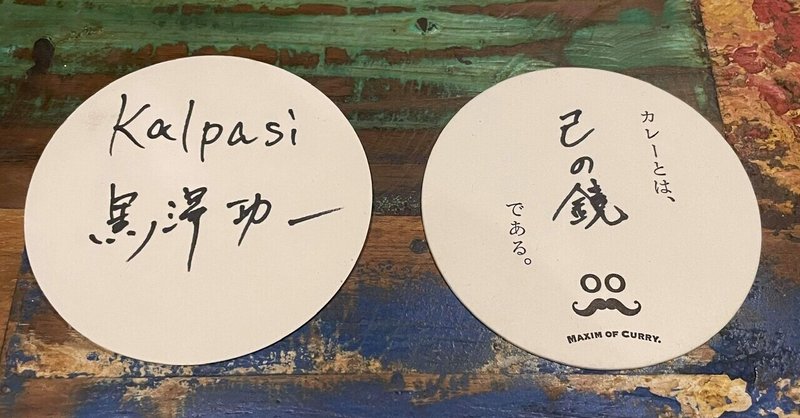 Kalpasi
黒澤功一
カレーとは、
己の鏡
である。
MAXIM OF CURRY.